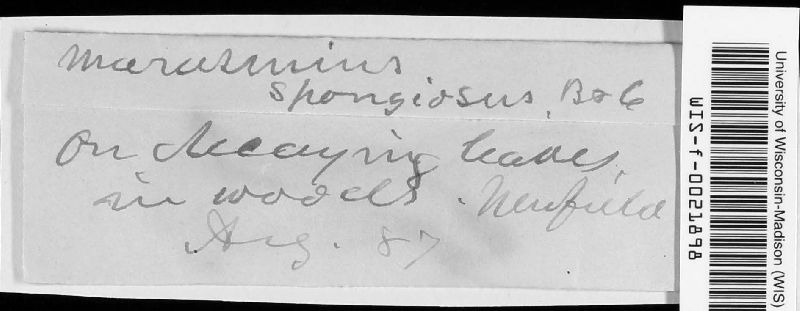 Marasmius
spongiosus, B & C
On decaying leaves,
in woods. Newfield
Aug. 87
University of Wisconsin-Madison (WIS)
WIS-f-0021898